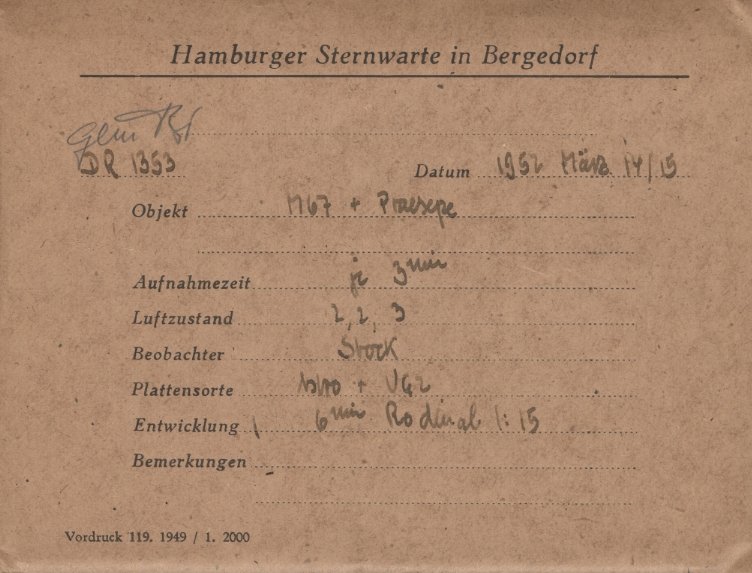 Hamburger Sternwarte in Bergedorf
DR 1353 Datum 1952 März 14/15
Objekt M67 + Praesepe
Aufnahmezeit je 3 min
Luftzustand 2, 2, 3
Beobachter Stock
Plattensorte + UG2
Entwicklung 6 min Rodinal 1:15
Bemerkungen
Vordruck 119. 1949 / 1. 2000